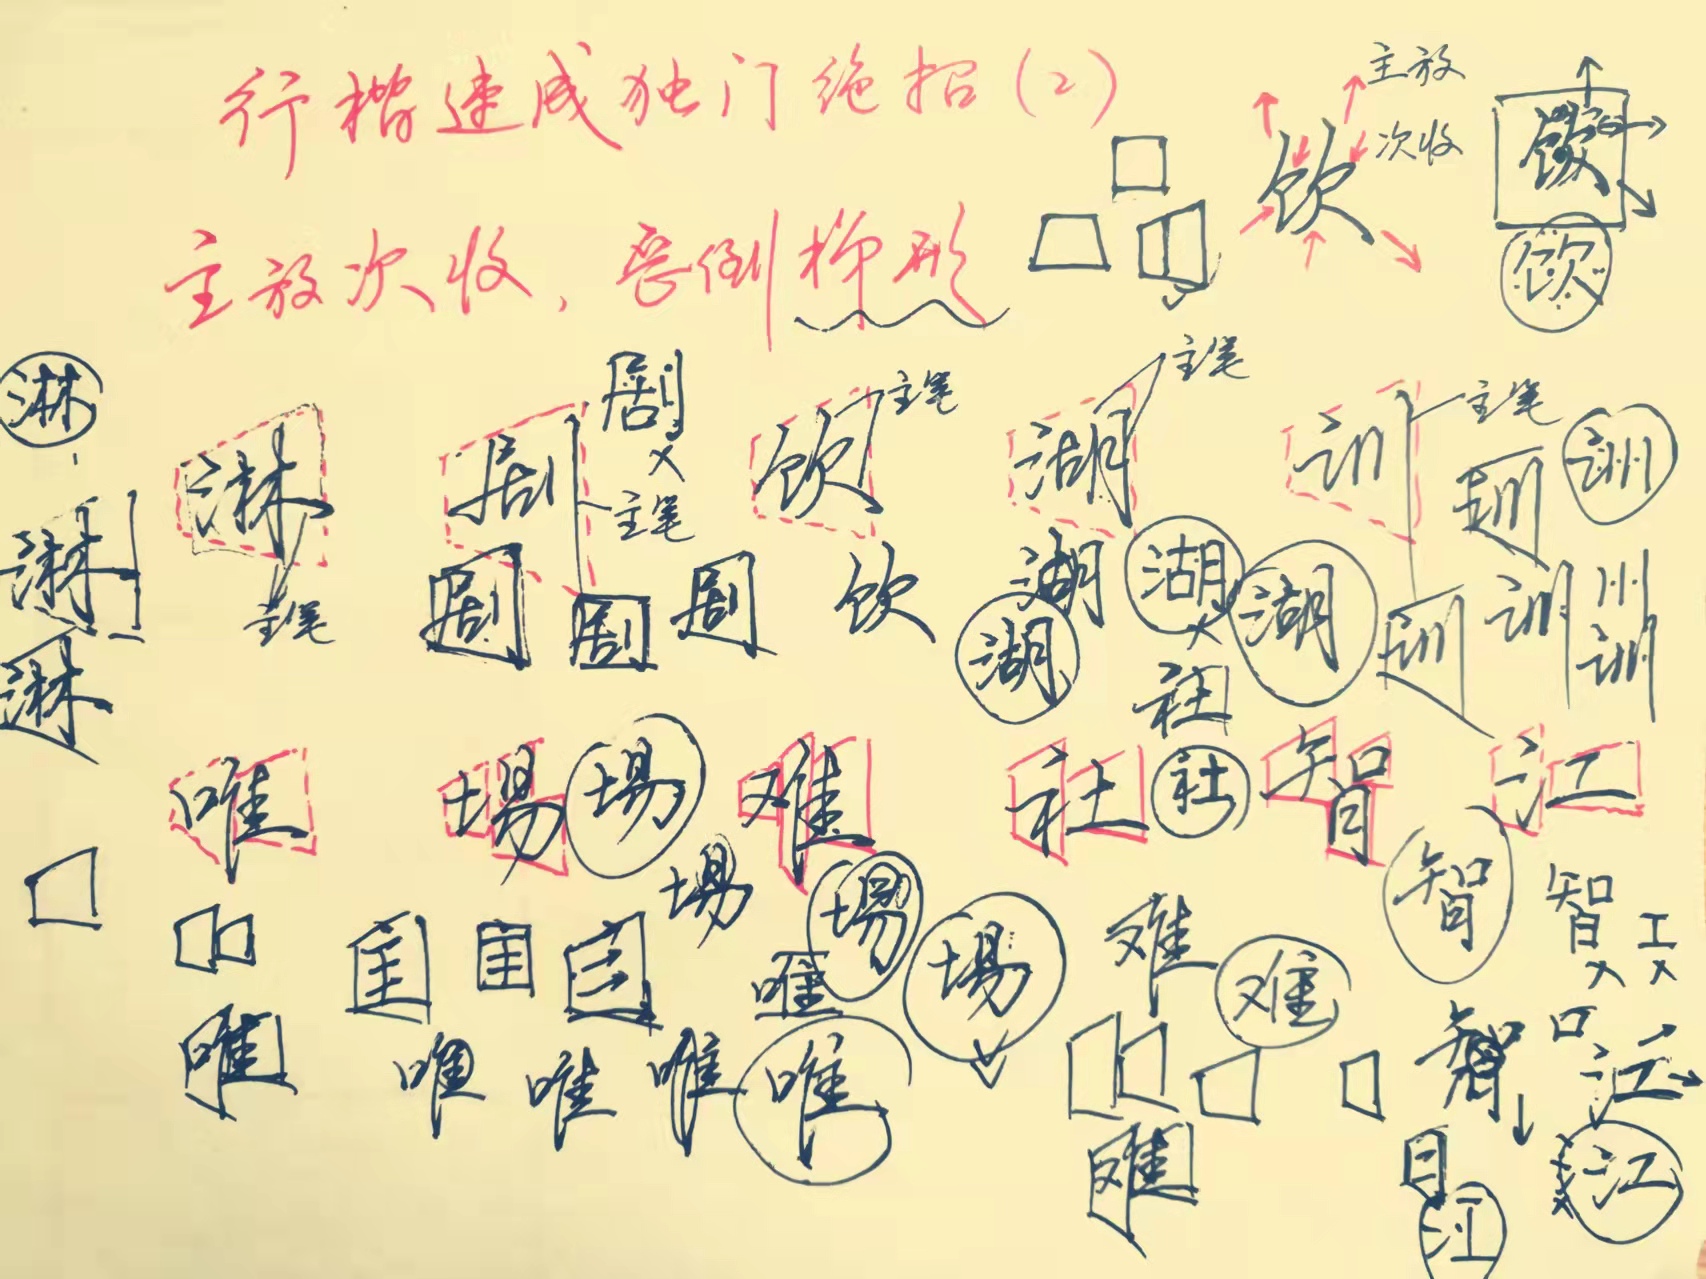 行楷速成独门绝招(2)
主放
次收
饮
饮
饮
主放次收,吾倒梯形
淋
淋
剧
剧
主笔
饮
主笔
湖
主笔
训
主笔
训
训
淋
主笔
剧
剧
剧
饮
湖
湖
湖
湖
训
训
川
训
淋
社
唯
場
場
难
社
社
智
江
場
場
場
难
难
智
智
工
唯
唯
唯
唯
唯
唯
智
口
江
难
日
江
江